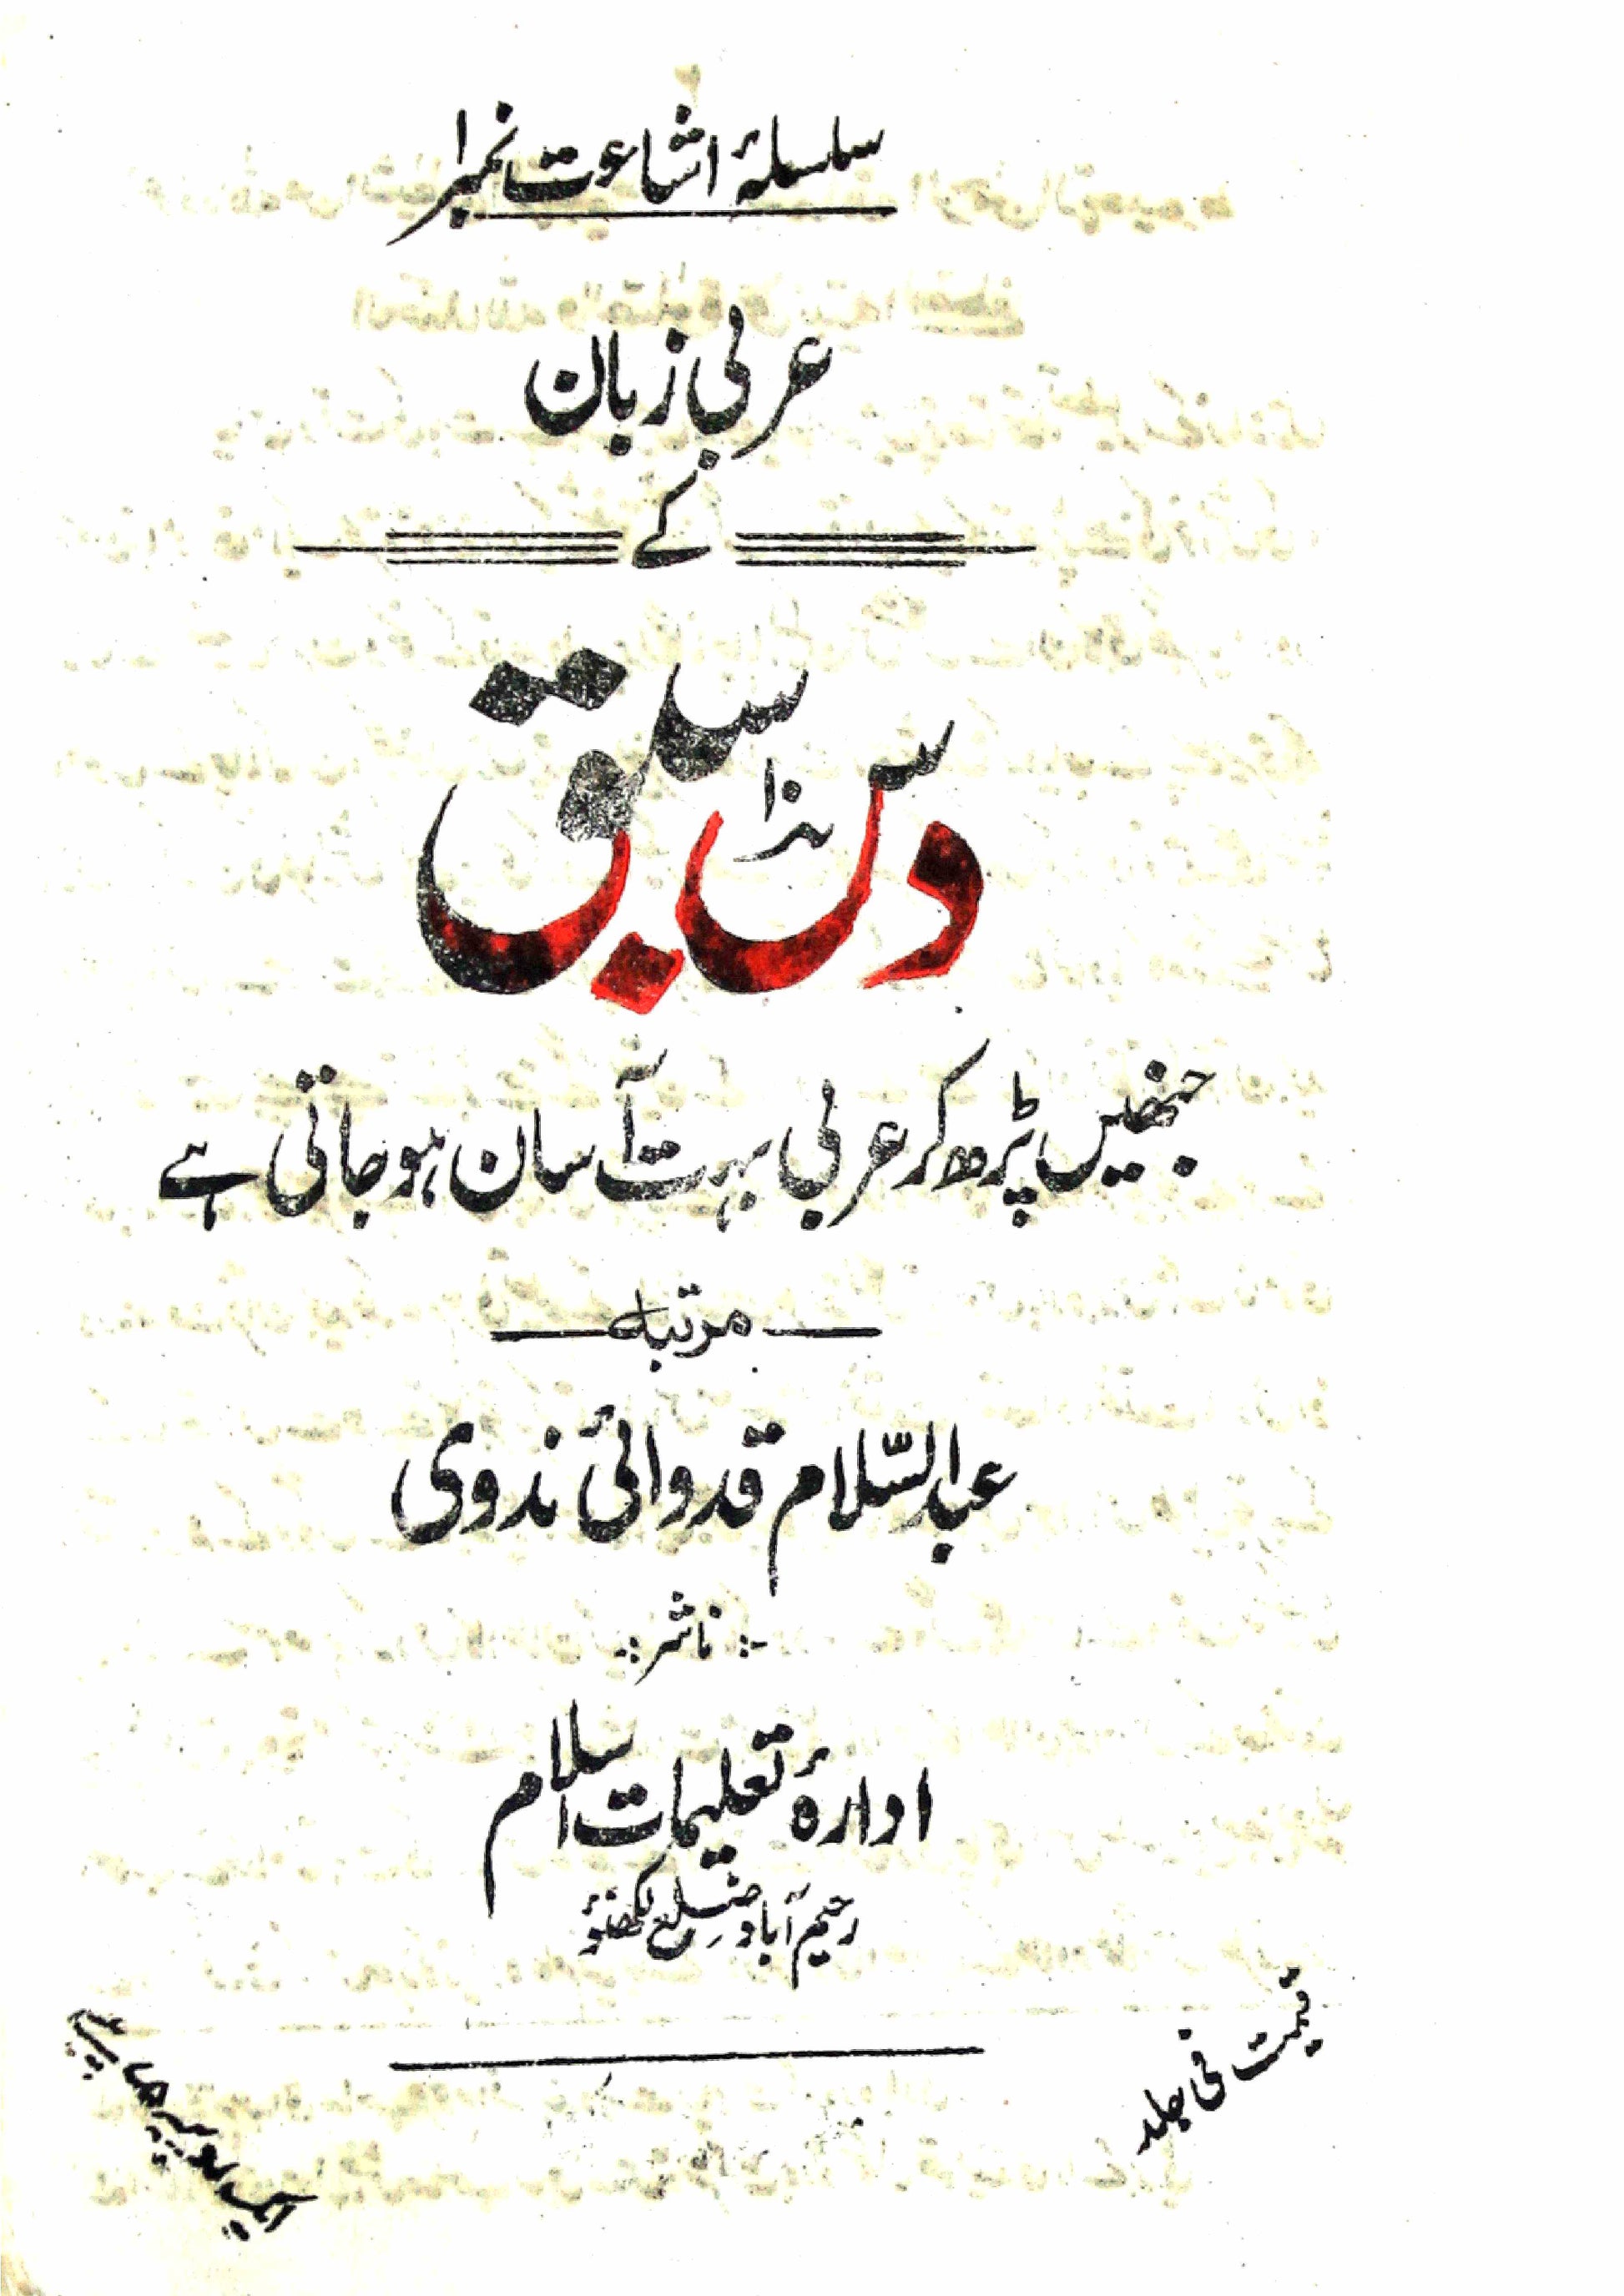 سلسلۂ اشاعت نمبر ۱
عربی زبان
کے
دس سبق
جنھیں پڑھ کر عربی بہت آسان ہو جاتی ہے
مرتبہ
عبد السّلام قدوائی ندوی
ناشر
ادارۂ تعلیمات اسلام
رحیم آباد ضلع لکھنؤ
قیمت فی جلد
ایک روپیہ